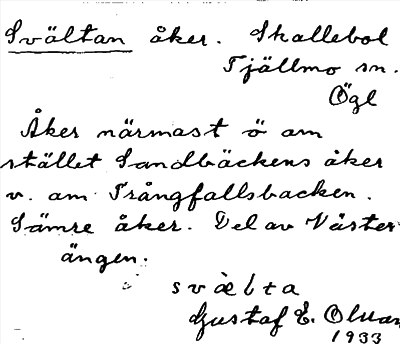 Svältan åker. Skallebol
Tjällmo sn.
Ögl
Åker närmast ö om
stället Sandbäckens åker
v. om Trångfallsbacken.
Sämre åker. Del av Väster
ängen.
svälta
Gustaf E. Olsson
1933